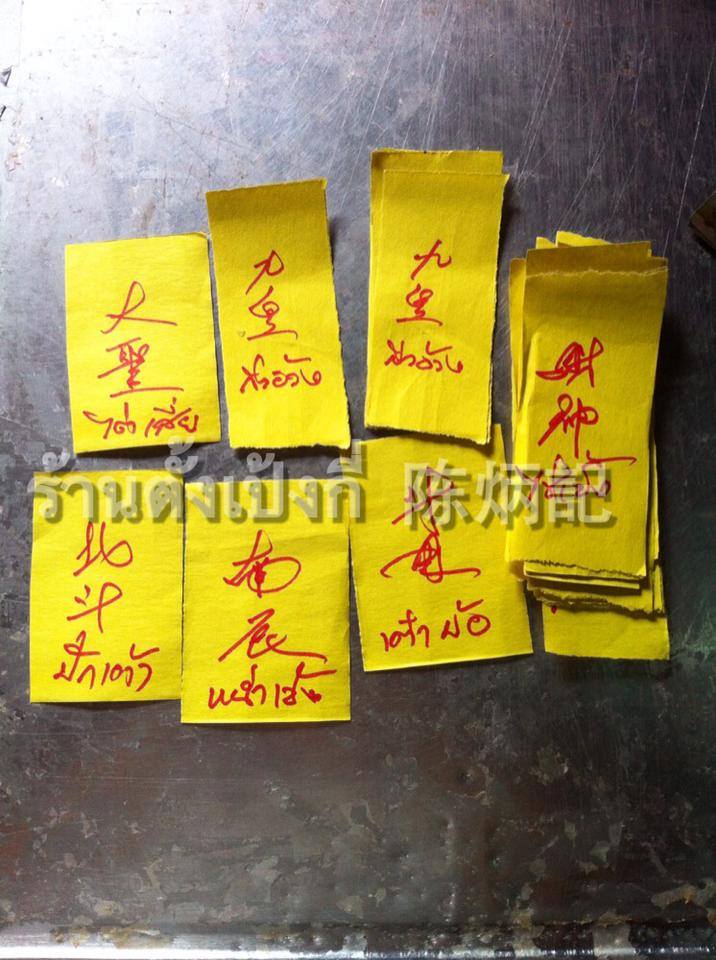 大
聖
ไต่เสี่ย
九
皇
กิวอ๋วง
九
皇
กิวอ๋วง
財
神
ร้านตั้งเป้งกี่ 陈炳記
北
斗
ปักเต้า
南
辰
หน่ำเซ้ง
斗
母
เต๋าบ้อ